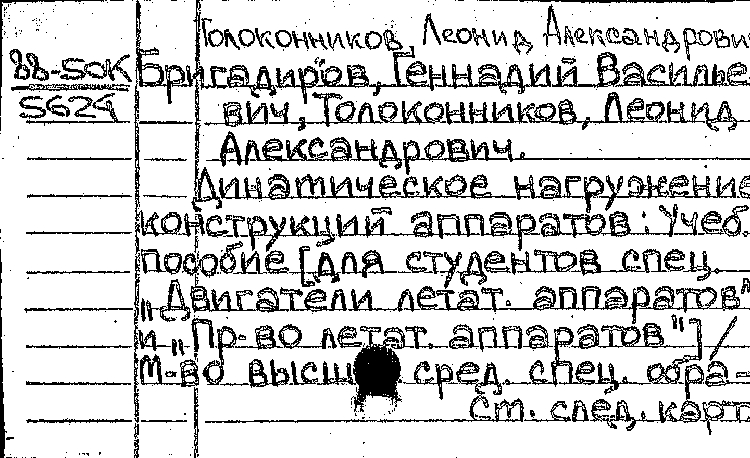 Толоконников, Леонид Александрович
88-50К Бригадиров, Геннадий Василье
5624 вич, Толоконников, Леонид
Александрович.
Динамическое нагружение
конструкций аппаратов : Учеб.
пособие [для студентов спец.
„Двигатели летат. аппаратов"
и „Пр-во летат. аппаратов"] /
М-во высш. сред. спец. обра-
См. след. карт